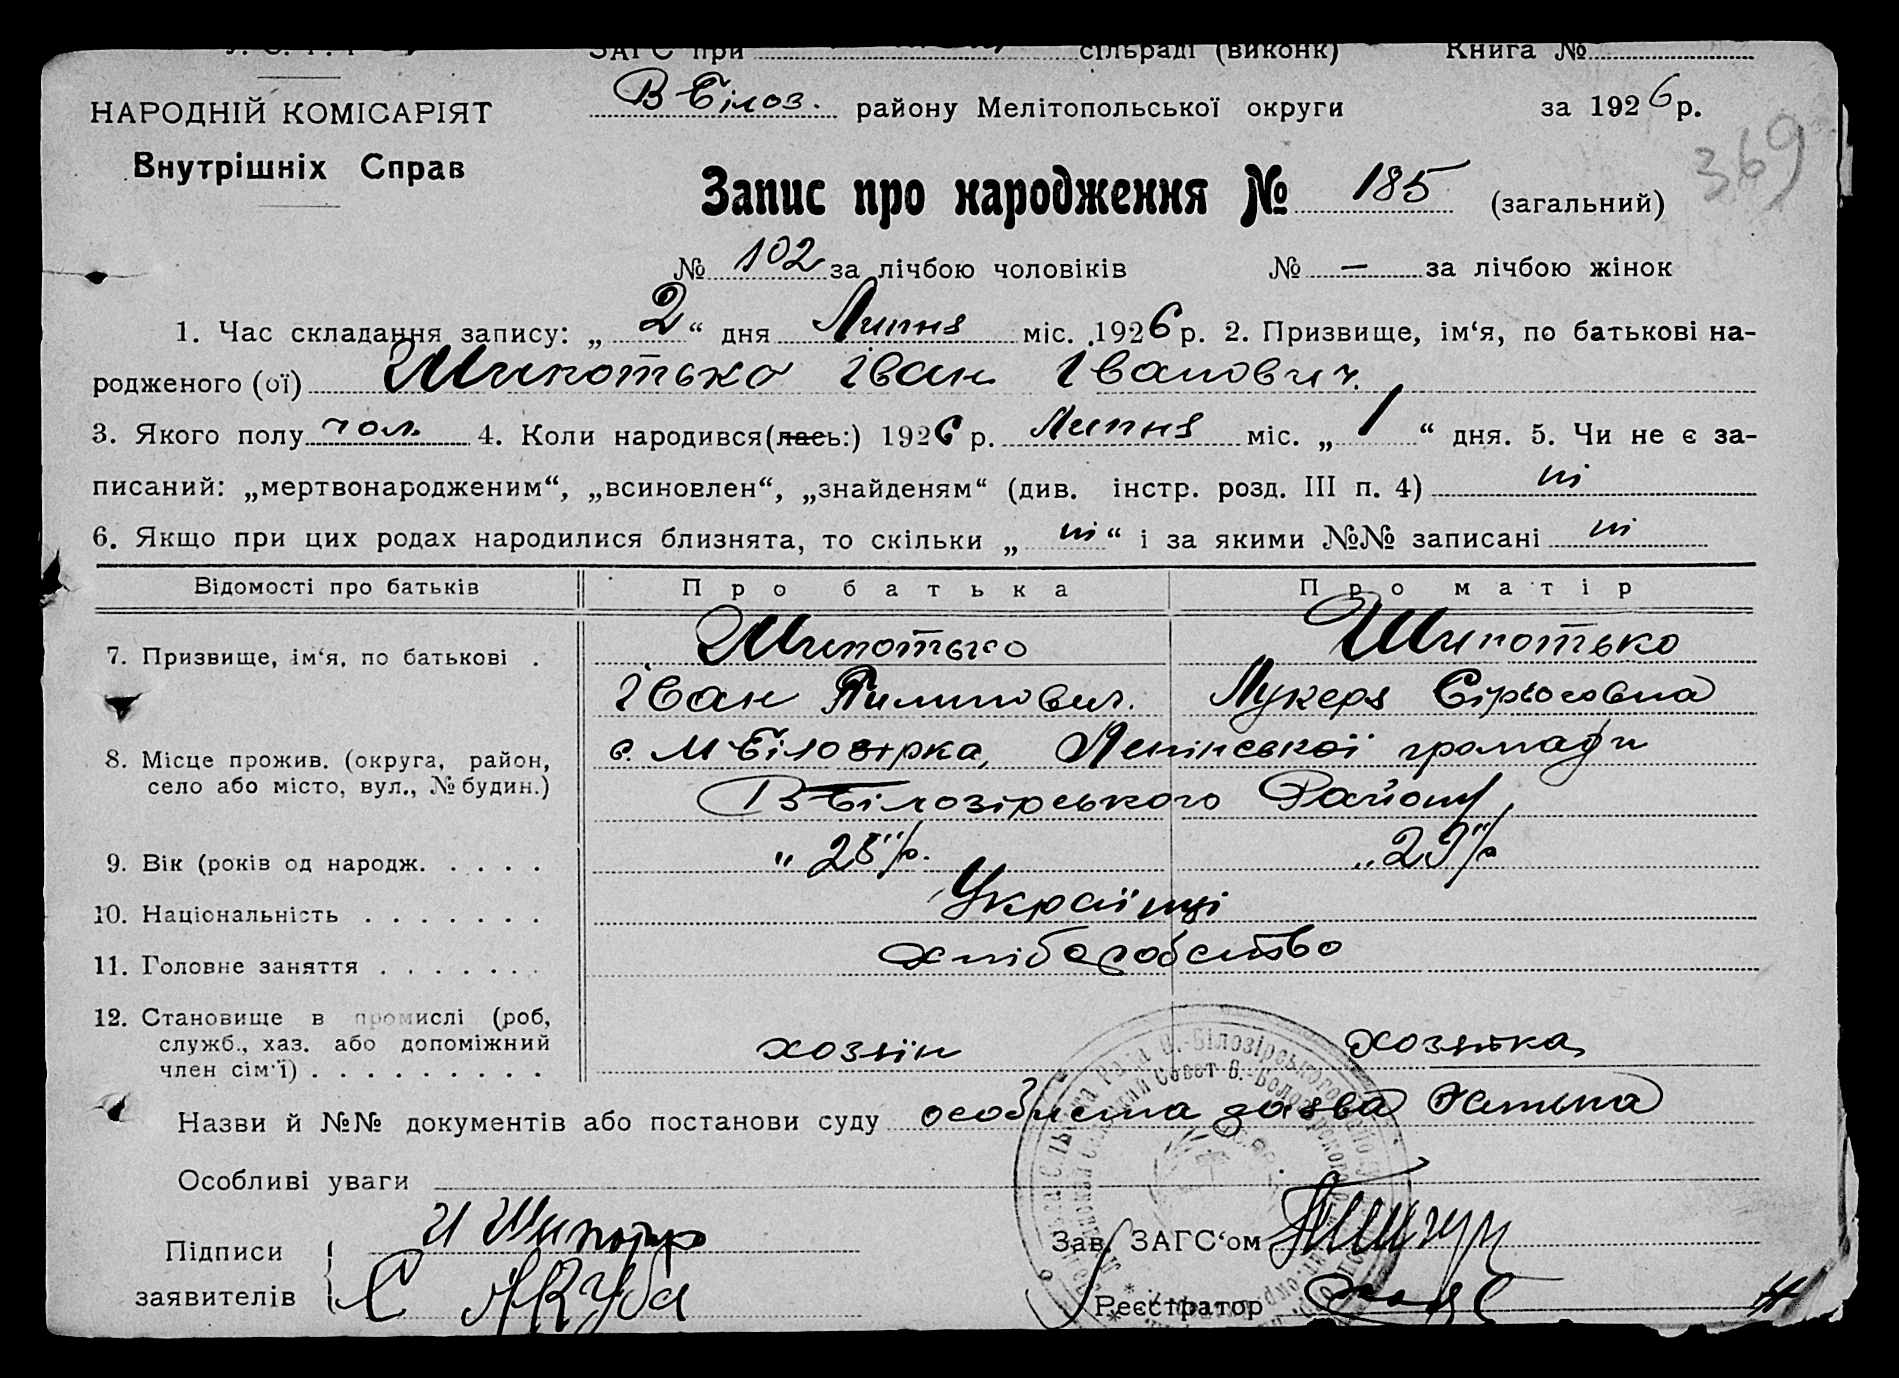 ЗАГС при сільраді (виконк) Книга №
НАРОДНІЙ КОМІСАРІЯТ
В Білоз. району Мелітопольської округи за 1926 р.
Внутрішніх Справ
369
Запис про народження № 185 (загальний)
№ 102 за лічбою чоловіків № — за лічбою жінок
1. Час складання запису: „ 2 “ дня Липня міс. 1926 р. 2. Призвище, ім‘я, по батькові на-
родженого (ої) Шипотько Іван Іванович.
3. Якого полу чол. 4. Коли народився(лась:) 1926 р. Липня міс. „ 1 “ дня. 5. Чи не є за-
писаний: „мертвонародженим“, „всиновлен“, „знайденям“ (див. інстр. розд. III п. 4) ні
6. Якщо при цих родах народилися близнята, то скільки „ ні “ і за якими №№ записані ні
Відомості про батьків Про батька Про матір
7. Призвище, ім‘я, по батькові . Шипотько Шипотько
Іван Пилипович. Лукеря Сірьговна
8. Місце прожив. (округа, район, с. М Білозірка, Ленінської громади
село або місто, вул., № будин.) ВБілозірського Району,
9. Вік (років од народж. . . . . „28“/р. „29“/р
10. Національність . . . . . . . Українці
11. Головне заняття . . . . . . . хліборобство
12. Становище в промислі (роб,
служб., хаз. або допоміжний хозяїн хозяйка
член сім‘ї) . . . . . . . . .
Назви й №№ документів або постанови суду особиста заява батька
Особливі уваги
Підписи И Шипотько Зав. ЗАГС‘ом
заявителів С Якуба Реєстратор